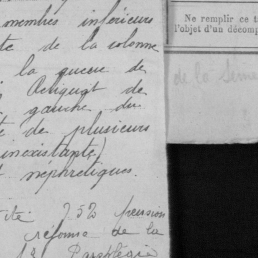 membres inférieurs
te de la colonne
la queue de
de
gauche du
de plusieurs
inexistante)
néphretiques.
752 pension
reforme de la
Ne remplir ce t
l'objet d'un décomp
de la Seine